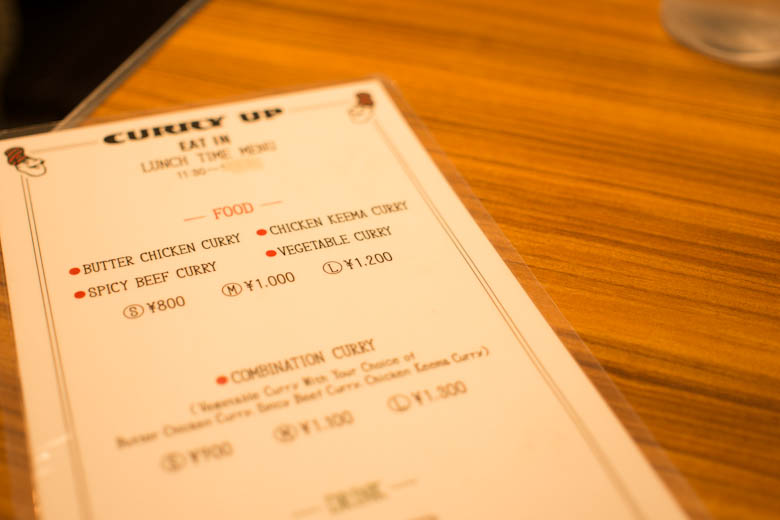 CURRY UP
EAT IN
LUNCH TIME MENU
11:30—
— FOOD —
● BUTTER CHICKEN CURRY ● CHICKEN KEEMA CURRY
● SPICY BEEF CURRY ● VEGETABLE CURRY
Ⓢ ¥800 Ⓜ ¥1.000 Ⓛ ¥1.200
● COMBINATION CURRY
(Vegetable Curry With Your Choice of
Butter Chicken Curry Spicy Beef Curry Chicken Keema Curry)
Ⓢ ¥900 Ⓜ ¥1.100 Ⓛ ¥1.300
— DRINK —